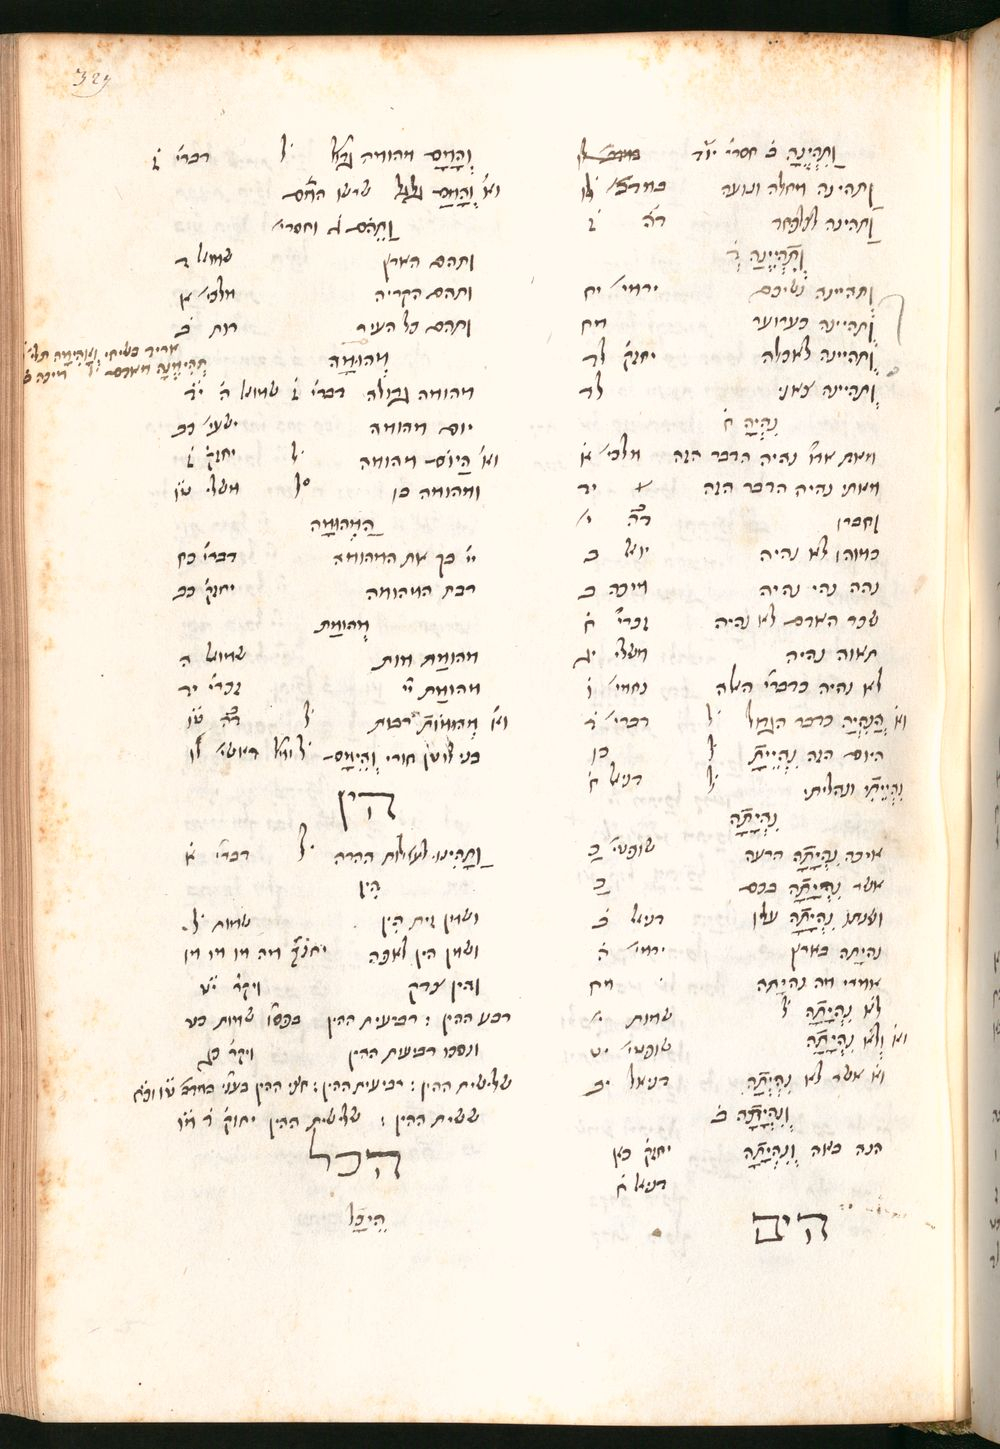 329
וַתִּהְיֶנָה ב̇ חסרי יו̇ד
ותהינה מחלה ונועה במדב׳ לו
ותהינה לכלפשר רה̇ ז̇
וְתִהְיֶינָה ד̇
ותהיינה נשיכם ירמי׳ יח
ותהיינה כערוער מח
ותהיינה לאכלה יחזק̇ לד
ותהיינה צאני לד
נִהְיָה ח̇
מאת אד̇ו̇ נהיה הדבר הזה מלכי׳ א̇ יב
מאתי נהיה הדבר הזה יד
וחברו דה̇ י׳א
כמוהו לא נהיה יואל ב
נהה נהי נהיה מיכה ב
שכר האדם לא נהיה זכרי̇ ח̇
תאוה נהיה משלי יג
לא נהיה כדברי̇ האלה נחמי׳ ו̇
וא̇ הֲנִהְיָה כדבר הגדול ל̇ דברי̇ ד̇
היום הזה נִהְיֵיתָ ל̇ כז
נִהְיֵיתִי ונחליתי ל̇ דניאל ח̇
נִהְיְתָה
איכה נִהְיְתָה הרעה שופטי׳ כ
אשר נִהְיְתָה בכם כ
ושנתו נִהְיְתָה עליו דניאל ב̇
נהיתה בארץ ירמי׳ ה̇
אמרי מה נהיתה מח
לֹא נִהְיְתָה ל̇ שמות י׳א
וא̇ וְלֹא נִהְיְתָה שופטי׳ יט
וא̇ אשר לא נִהְיְתָה דניאל יב
וְנִהְיָתָה ב̇
הנה באה וְנִהְיָתָה יחזק̇ כא
דניאל ח̇
הים
וְהָמָם מהומה גדולה ל̇ דברי̇ ז̇
וא̇ וְהָמַם גלגל שרשו המ̇ם
וַתֵּהֹם ג̇ וחסרי׳
ותהם הארץ שמואל ד
ותהם הקריה מלכי׳ א̇
ותהם כל העיר רות ב̇
מְהוּמָה
מהומה גדולה דברי̇ ז̇ שמואל ה̇ יד̇
יום מהומה ישעי׳ כב
וא̇ הַיּוֹם מהומה ל̇ יחזק̇ ז̇
ומהומה בו ל̇ משלי טו̇
הַמְהוּמָה
יי̇ בך את המהומה דברי̇ כח
רבת המהומה יחזק̇ כב
מְהוּמַת
מהומת מות שמואל ה
מהומת יי̇ זכרי̇ יד
וא̇ מְהוּמוֹת רבות ל̇ דה̇ טו̇
בני לוטן חורי וְהֵימָם ל̇ ומל̇ בראשי׳ לו̇
הין
וַתָּהִינוּ לעלות ההרה ל̇ דברי̇ א̇
הִין
ושמן זית הִין שמות ל̇
ושמן הין לאפה יחזק̇ מה מו מו מו
והין צדק ויקר̇ יט̇
רבע ההין : רביעית ההין בפסו̇ שמות כט
ונסכו רביעית ההין ויקר̇ כג
שלישית ההין : רביעית ההין : חצי ההין בעני̇ במדב̇ טו̇ וכח̇
ששית ההין : שלישית ההין יחזק̇ ד̇ מו̇
הכל
הֵיכָל